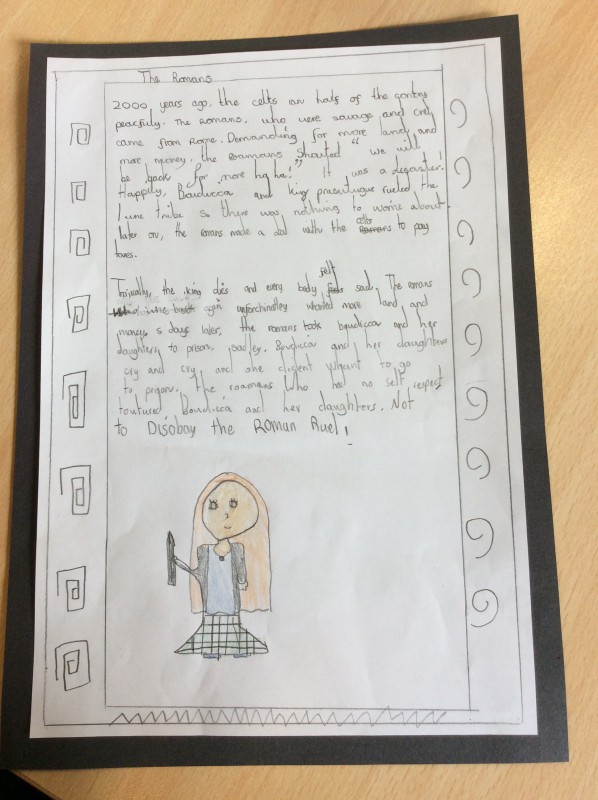 The Romans
2000 years ago, the celts own half of the contry
peacfuly. The Romans, who were savage and crel
came from Rome. Demanding for more land and
more money. the Roamans shouted " we will
be back for more ha ha!" It was a desaster!
Happily, Boudicca and king prasutugue rueled the
tribe so there was nothing to worrie about
later on, the romans made a deal with the celts to pay
taxes.
Tragically, the king dies and every body felt sad. The romans
again unforchinatley whanted more land and
money 5 days later, the romans took boudicca and her
daughters to prison, badley. Boudicca and her daughters
cry and cry and she dident whant to go
to prison. The roamans who had no self respect
toutured Boudicca and her daughters. Not
to Disobay the Roman Ruel!